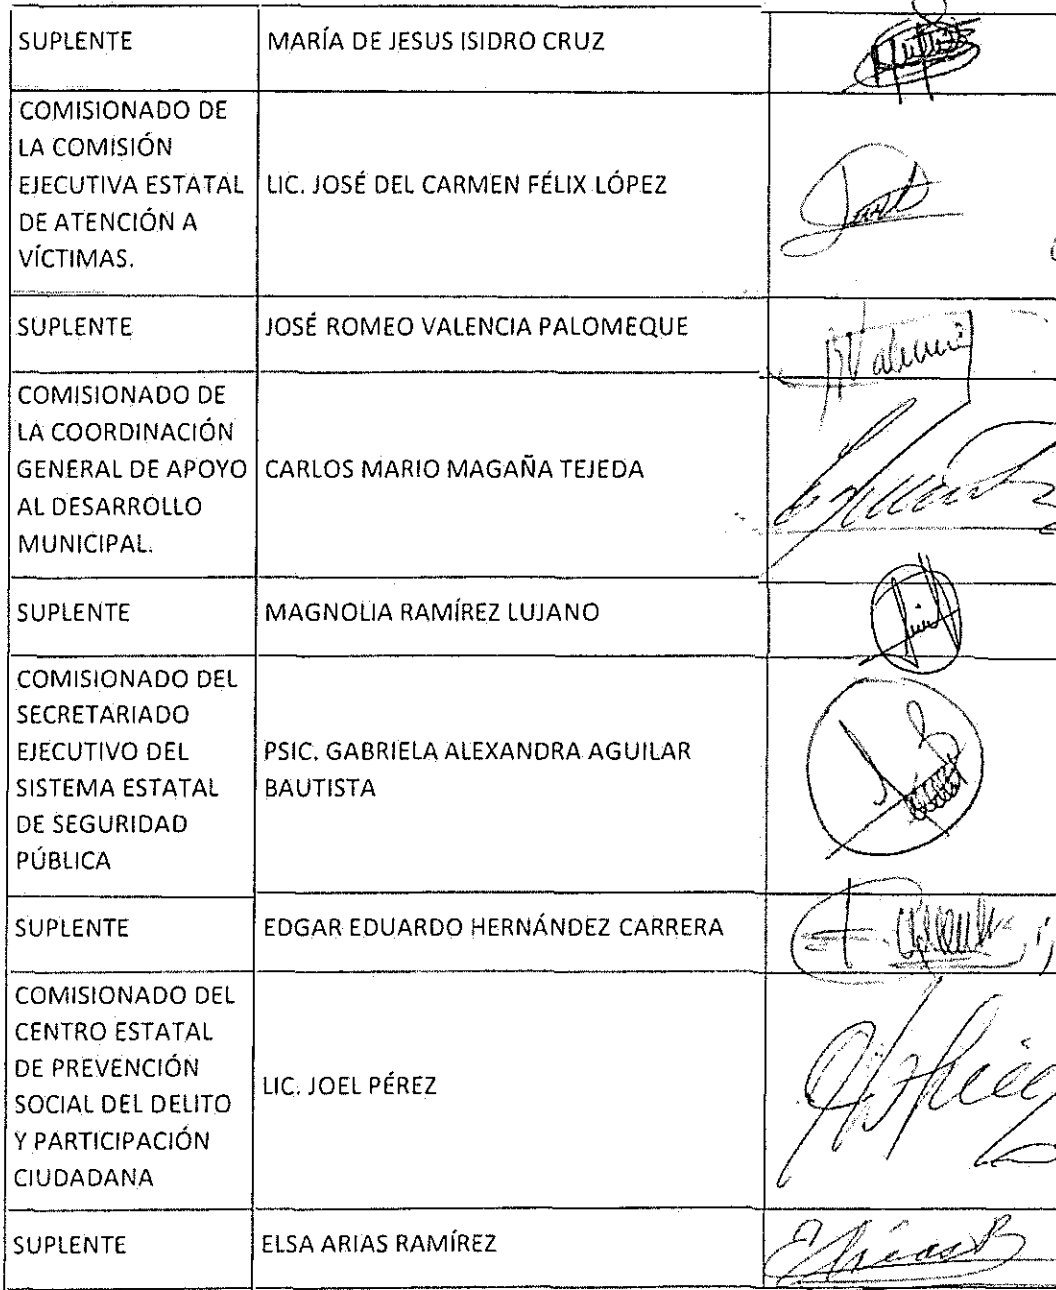 SUPLENTE
MARÍA DE JESUS ISIDRO CRUZ
COMISIONADO DE
LA COMISIÓN
EJECUTIVA ESTATAL
DE ATENCIÓN A
VÍCTIMAS.
LIC. JOSÉ DEL CARMEN FÉLIX LÓPEZ
SUPLENTE
JOSÉ ROMEO VALENCIA PALOMEQUE
COMISIONADO DE
LA COORDINACIÓN
GENERAL DE APOYO
AL DESARROLLO
MUNICIPAL.
CARLOS MARIO MAGAÑA TEJEDA
SUPLENTE
MAGNOLIA RAMÍREZ LUJANO
COMISIONADO DEL
SECRETARIADO
EJECUTIVO DEL
SISTEMA ESTATAL
DE SEGURIDAD
PÚBLICA
PSIC. GABRIELA ALEXANDRA AGUILAR
BAUTISTA
SUPLENTE
EDGAR EDUARDO HERNÁNDEZ CARRERA
COMISIONADO DEL
CENTRO ESTATAL
DE PREVENCIÓN
SOCIAL DEL DELITO
Y PARTICIPACIÓN
CIUDADANA
LIC. JOEL PÉREZ
SUPLENTE
ELSA ARIAS RAMÍREZ